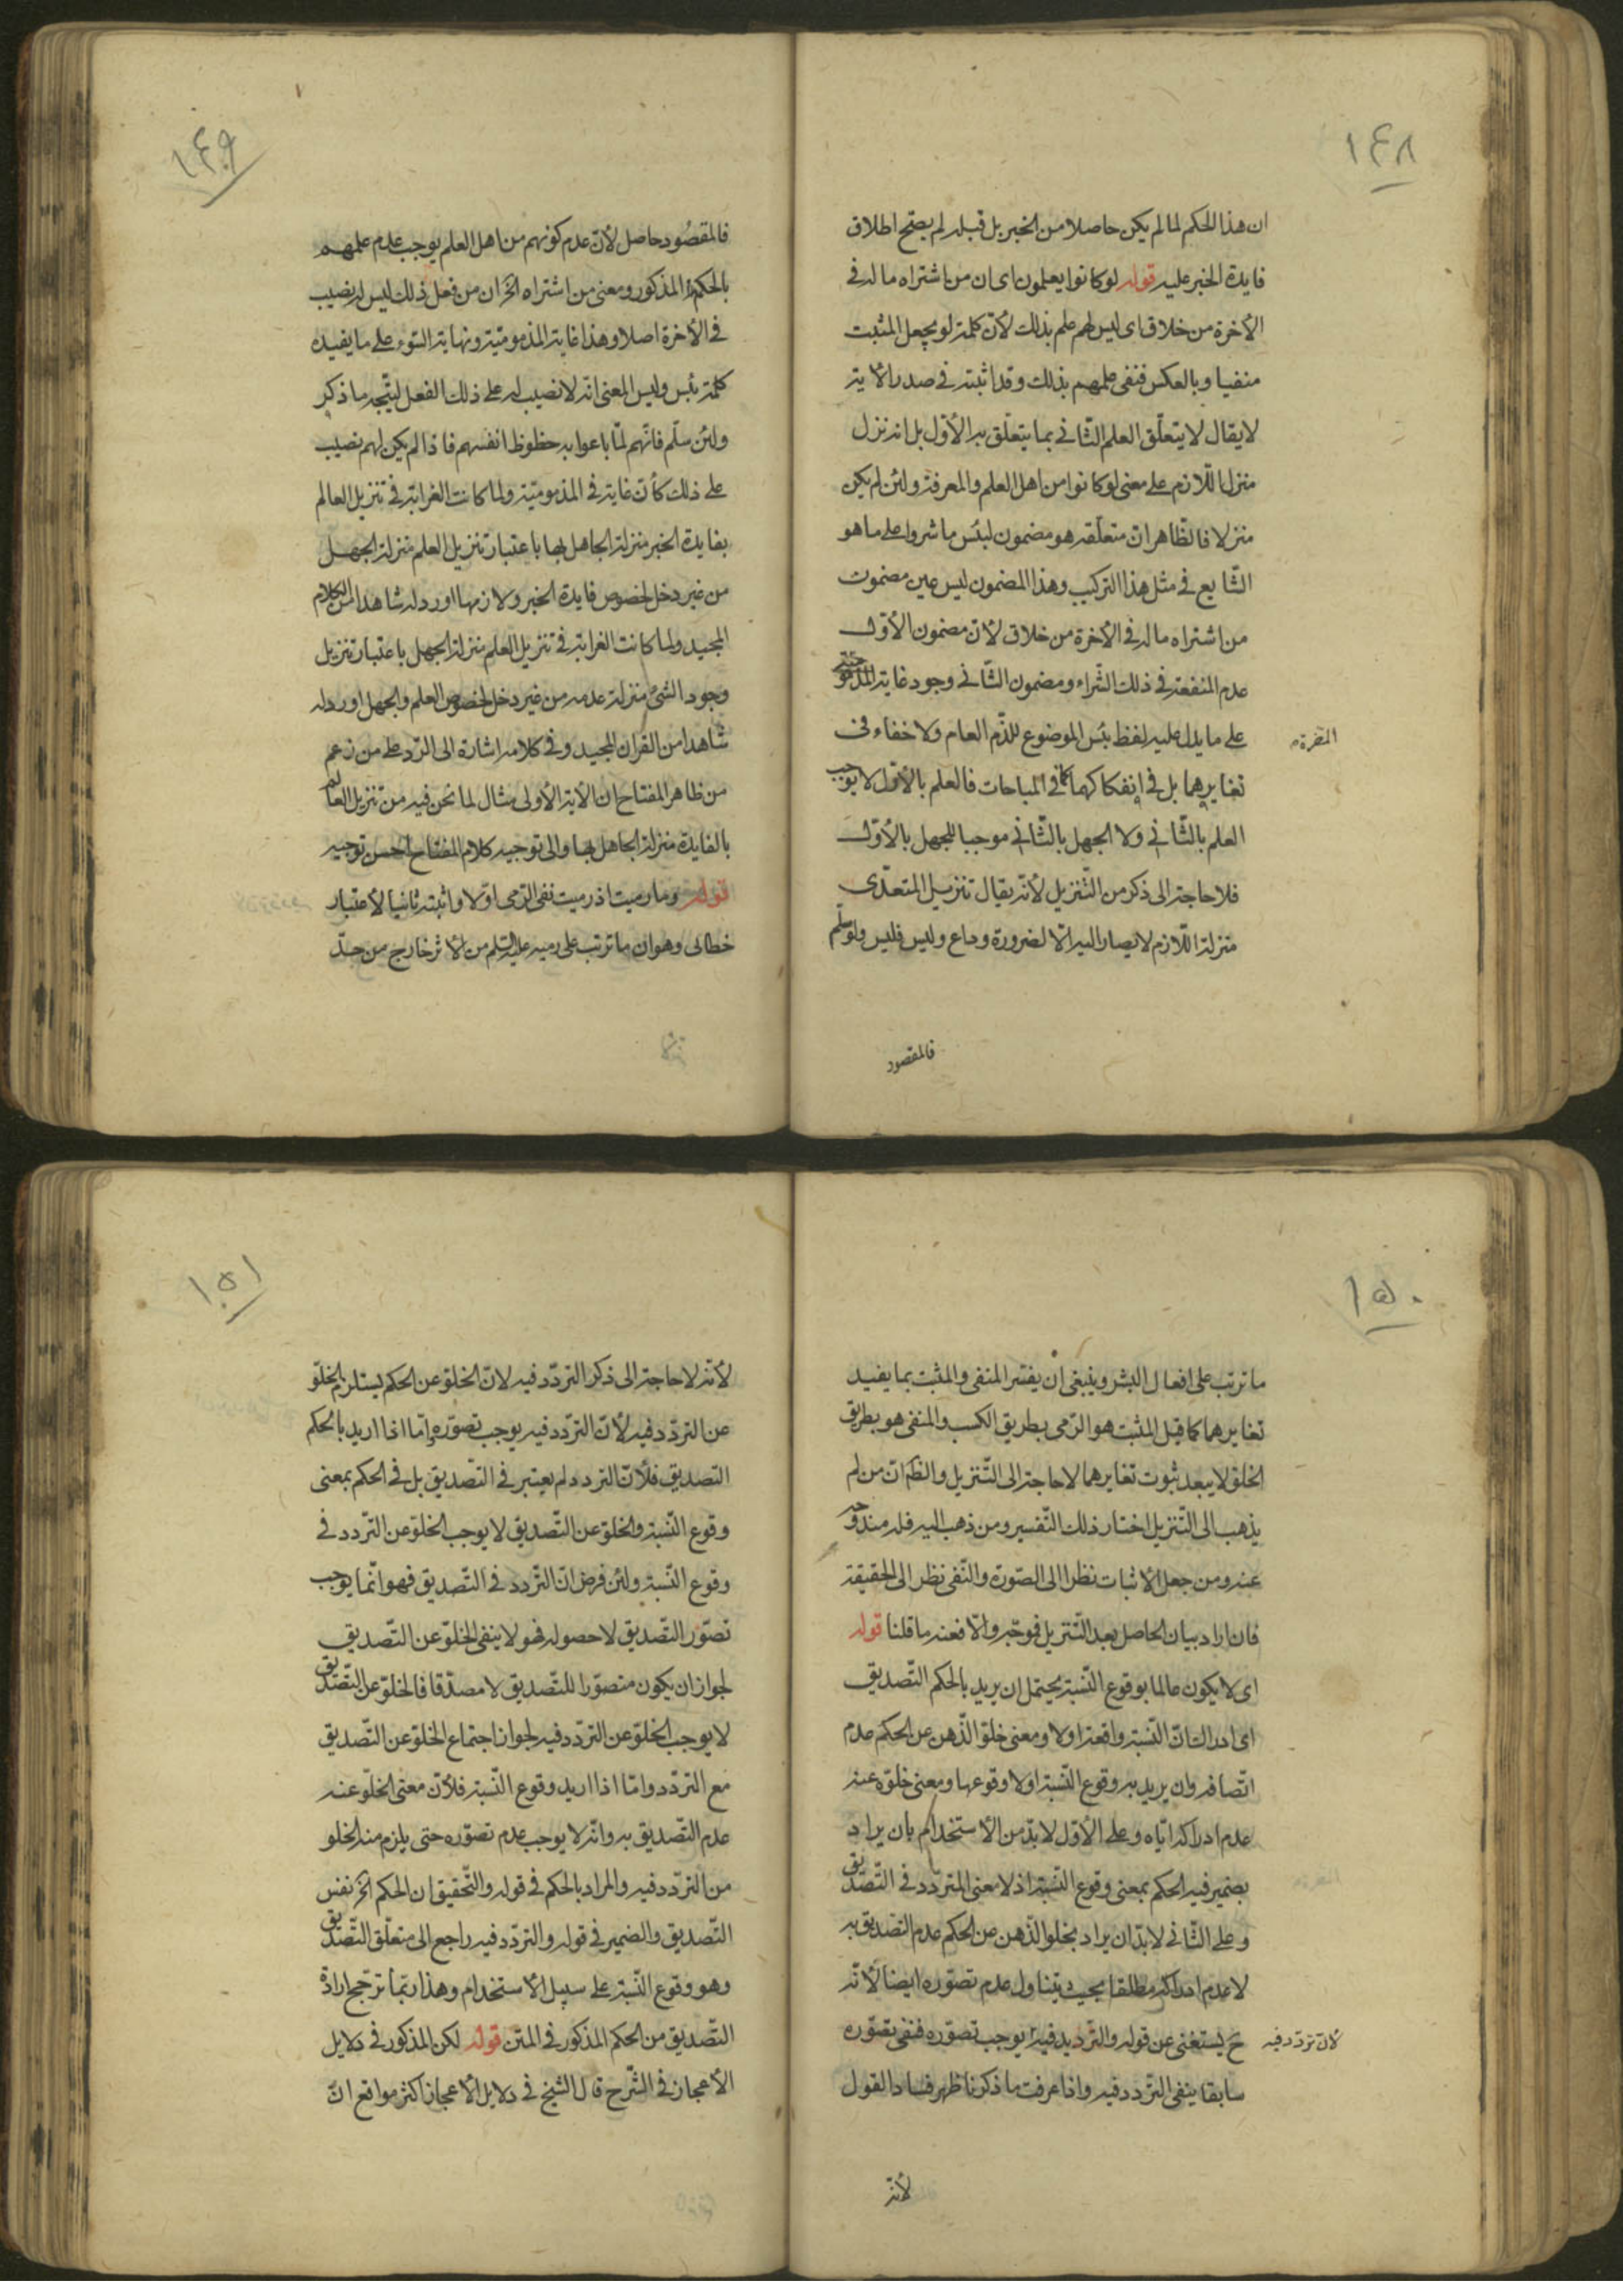 ١٤٨
ان هذا الحكم لما لم يكن حاصلا من الخبر بل قبله لم يصح اطلاق
فايدة الخبر عليه قوله لو كانوا يعلمون اى ان من اشتراه ما له فى
الأخرة من خلاق اى ليس لهم علم بذلك لأنّ كلمة لو يجعل المثبت
منفيا وبالعكس فنفى علمهم بذلك وقد اثبته فى صدر الأية
لا يقال لا يتعلّق العلم الثّانى بما يتعلّق به الأوّل بل انه نزل
منزل اللّازم على معنى لو كانوا من اهل العلم والمعرفة ولئن لم يكن
منزلا فالظّاهر انّ متعلّقه هو مضمون لبئس ما شروا على ما هو
الشّايع فى مثل هذا التركيب وهذا المضمون ليس عين مضمون
من اشتراه ما له فى الأخرة من خلاق لأنّ مضمون الأوّل
عدم المنفعة فى ذلك الشّراء ومضمون الثّانى وجود غاية المذموميّة
على ما يدل عليه لفظ بئس الموضوع للذّم العام ولا خفاء فى
تغايرهما بل فى انفكاكهما كما فى المباحات فالعلم بالأوّل لا يوجب
العلم بالثّانى ولا الجهل بالثّانى موجبا للجهل بالأوّل
فلا حاجة الى ذكر من التّنزيل لأنّه يقال تنزيل المتعدّى
منزلة اللّازم لا يصار اليه الّا لضرورة وداع وليس فليس ولو سلّم
فالمقصود
١٤٩
فالمقصُود حاصل لأنّ عدم كونهم من اهل العلم يوجب عدم علمهم
بالحكم المذكور ومعنى من اشتراه الخ ان من فعل ذلك ليس له نصيب
فى الأخرة اصلا وهذا غاية المذموميّة ونهاية السّوء على ما يفيده
كلمة بئس وليس المعنى انّه لا نصيب له على ذلك الفعل ليتّجه ما ذكر
ولئن سلّم فانّهم لمّا باعوا به حظوظ انفسهم فاذا لم يكن لهم نصيب
على ذلك كأن غاية فى المذموميّة ولما كانت الغرابة فى تنزيل العالم
بفايدة الخبر منزلة الجاهل بها باعتبار تنزيل العلم منزلة الجهل
من غير دخل لخصوص فايدة الخبر ولازمها اورد له شاهدا من الكلام
المجيد ولما كانت الغرابة فى تنزيل العلم منزلة الجهل باعتبار تنزيل
وجود الشئ منزلة عدمه من غير دخل لخصوص العلم والجهل اورد له
شاهدا من القران المجيد وفى كلامه اشارة الى الرّد على من زعم
من ظاهر المفتاح ان الأية الأولى مثال لما نحن فيه من تنزيل العالم
بالفايدة منزلة الجاهل بها والى توجيه كلام المفتاح احسن توجيه
قوله وما رميت اذ رميت نفى الرّمى اوّلا واثبته ثانيا لأعتبار
خطابى وهو ان ما ترتب على رميه عليه السّلم من الأثر خارج من حدّ
١٥٠
ما ترتب على افعال البشر وينبغى ان يفسّر المنفى والمثبت بما يفيد
تغايرهما كما قيل المثبت هو الرّمى بطريق الكسب والمنفى هو بطريق
الخلق لا يبعد ثبوت تغايرهما لا حاجة الى التّنزيل والظّاهر انّ من لم
يذهب الى التّنزيل اختار ذلك التّفسير ومن ذهب اليه فله مندوحة
عنه ومن جعل الأثبات نظرا الى الصّورة والنّفى نظر الى الحقيقة
فان اراد بيان الحاصل بعد التّنزيل فموجّه والّا فعنه ما قلنا قوله
اى لا يكون عالما بوقوع النّسبة يحتمل ان يريد بالحكم التّصديق
اى ادراك انّ النّسبة واقعة اولا ومعنى خلوّ الذّهن عن الحكم عدم
اتّصافه وان يريد به وقوع النّسبة او لا وقوعها ومعنى خلوّه عنه
عدم ادراكه ايّاه وعلى الأوّل لا بدّ من الأستخدام بان يراد
بضمير فيه الحكم بمعنى وقوع النّسبة اذ لا معنى المتردّد فى التّصديق
وعلى الثّانى لا بدّ ان يراد بخلو الذّهن عن الحكم عدم التصديق به
لا عدم ادراكه مطلقا بحيث يتناول عدم تصوّره ايضا لأنّه
ح يستغنى عن قوله والتّرديد فيه يوجب تصوّره فنفى تصوّره
لأن تردّد فيه
سابقا ينفى التردد فيه واذا عرفت ما ذكرنا ظهر فساد القول
لأنّه
١٥١
لأنّه لا حاجة الى ذكر التردّد فيه لانّ الخلوّ عن الحكم يستلزم الخلوّ
عن التردّد فيه لأنّ التردّد فيه يوجب تصوّره امّا اذا اريد بالحكم
التصديق فلأنّ التردد لم يعتبر فى التصديق بل فى الحكم بمعنى
وقوع النّسبة والخلوّ عن التّصديق لا يوجب الخلوّ عن التّردد فى
وقوع النّسبة ولئن فرض انّ التّردد فى التّصديق فهو انّما يوجب
تصوّر التّصديق لا حصوله فهو لا ينفى الخلوّ عن التّصديق
لجواز ان يكون متصوّرا للتّصديق لا مصدّقا فالخلوّ عن التّصديق
لا يوجب الخلوّ عن التردّد فيه لجواز اجتماع الخلوّ عن التّصديق
مع التردّد وامّا اذا اريد وقوع النّسبة فلأنّ معنى الخلوّ عنه
عدم التّصديق به وانّه لا يوجب عدم تصوّره حتى يلزم منه الخلو
من التردّد فيه والمراد بالحكم فى قوله والتّحقيق ان الحكم الخ نفس
التّصديق والضمير فى قوله والتردّد فيه راجع الى متعلّق التّصديق
وهو وقوع النّسبة على سبيل الأستخدام وهذا ربّما ترجّح ارادة
التّصديق من الحكم المذكور فى المتن قوله لكن المذكور فى دلايل
الأعجاز فى الشّرح قال الشّيخ فى دلايل الأعجاز اكثر مواقع انّ